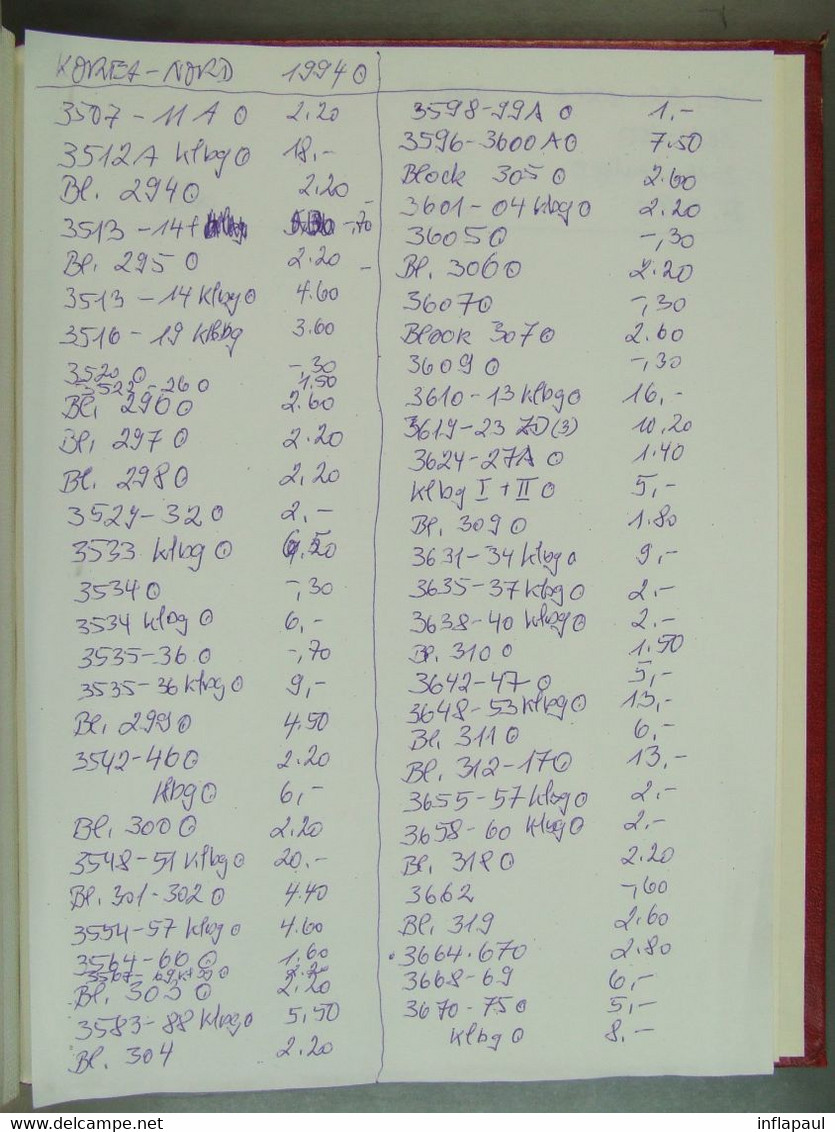 KOREA-NORD 1994 ʘ
3507-11A ʘ 2.20
3512A Klbg ʘ 18,-
Bl. 294 ʘ 2.20
3513-14 -,70
Bl. 295 ʘ 2.20
3513-14 Klbg ʘ 4.60
3516-19 Klbg 3.60
3520 ʘ -,30
3522-26 ʘ 1.50
Bl. 296 ʘ 2.60
Bl. 297 ʘ 2.20
Bl. 298 ʘ 2.20
3529-32 ʘ 2,-
3533 Klbg ʘ
3534 ʘ -,30
3534 Klbg ʘ 6,-
3535-36 ʘ -,70
3535-36 Klbg ʘ 9,-
Bl. 299 ʘ 4.50
3542-46 ʘ 2.20
Klbg ʘ 6,-
Bl. 300 ʘ 2.20
3548-51 Klbg ʘ 20.-
Bl. 301-302 ʘ 4.40
3554-57 Klbg ʘ 4.60
3564-66 ʘ 1.60
2.20
Bl. 303 ʘ 2.20
3583-88 Klbg ʘ 5,50
Bl. 304 2.20
3598-99A ʘ 1.-
3596-3600A ʘ 7.50
Block 305 ʘ 2.60
3601-04 Klbg ʘ 2.20
3605 ʘ -,30
Bl. 306 ʘ 2.20
3607 ʘ -,30
Block 307 ʘ 2.60
3609 ʘ -,30
3610-13 Klbg ʘ 16,-
3619-23 ZD (3) 10,20
3624-27A ʘ 1.40
Klbg I + II ʘ 5,-
Bl. 309 ʘ 1.80
3631-34 Klbg ʘ 9,-
3635-37 Klbg ʘ 2.-
3638-40 Klbg ʘ 2.-
Bl. 310 ʘ 1.50
3642-47 ʘ 5,-
3648-53 Klbg ʘ 13,-
Bl. 311 ʘ 6,-
Bl. 312-17 ʘ 13,-
3655-57 Klbg ʘ 2.-
3658-60 Klbg ʘ 2.-
Bl. 318 ʘ 2.20
3662 -,60
Bl. 319 2.60
3664.67 ʘ 2.80
3668-69 6,-
3670-75 ʘ 5,-
Klbg ʘ 8.-
delcampe.net
inflapaul